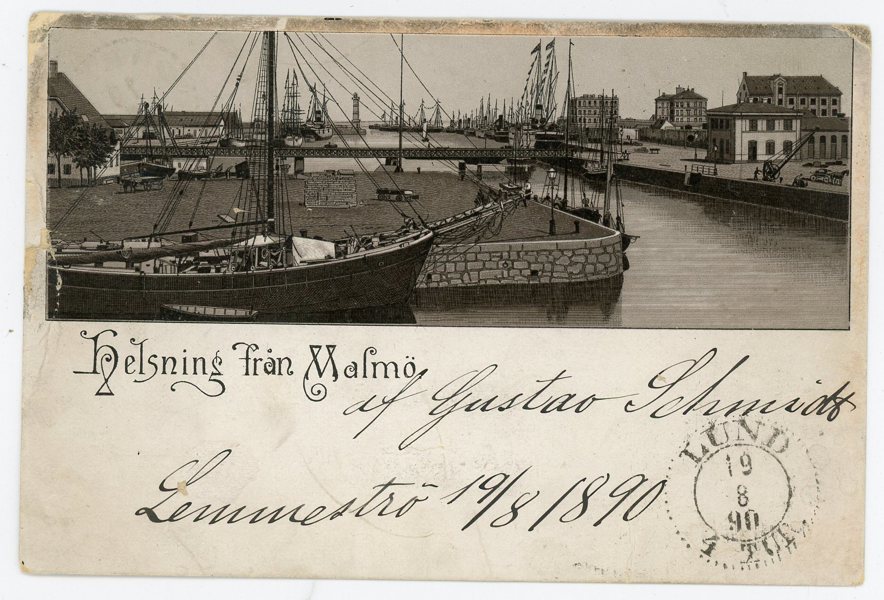 Helsning från Malmö
af Gustav Schmidt
Lemmeströ 19/8 1890
LUND
19
8
90
TUR